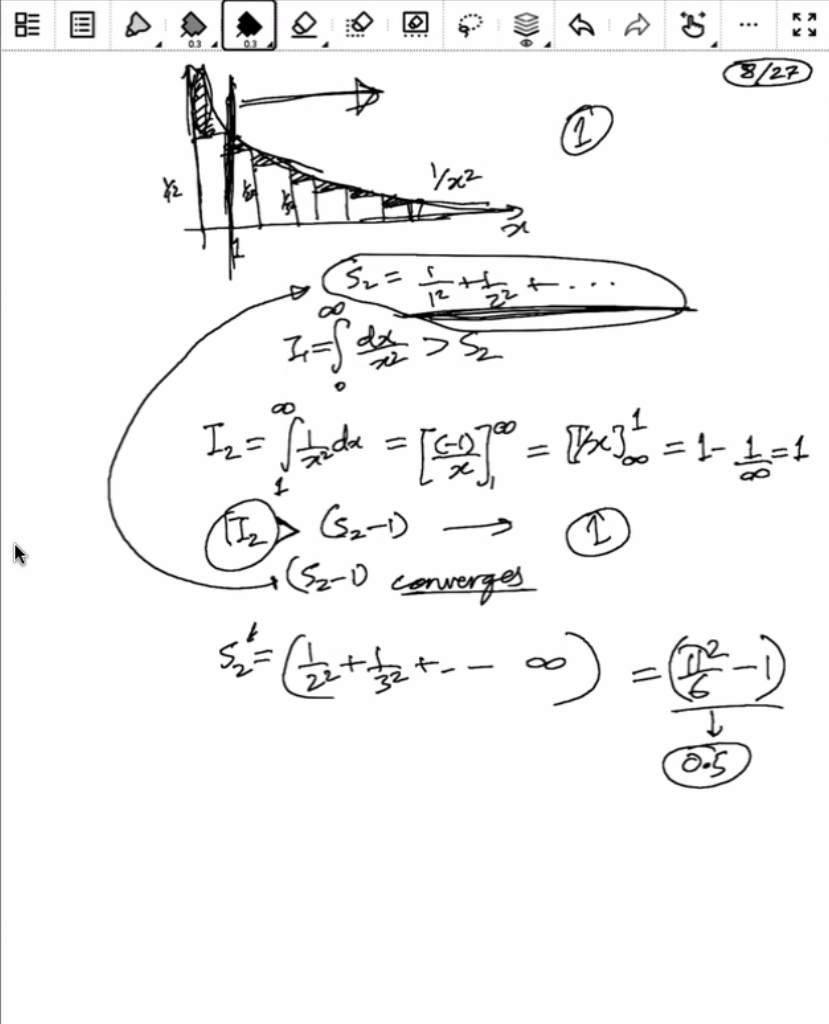 0.3 0.3 ...
8/27
1
1/x²
x
1
S₂ = 1/1² + 1/2² + ...
I₁ = ∫₀^∞ dx/x² > S₂
I₂ = ∫₁^∞ 1/x² dx = [(-1)/x]₁^∞ = [1/x]_∞^1 = 1 - 1/∞ = 1
I₂ > (S₂-1) → 1
(S₂-1) converges
S₂' = (1/2² + 1/3² + . - - ∞) = (π²/6 - 1)
↓
0.5